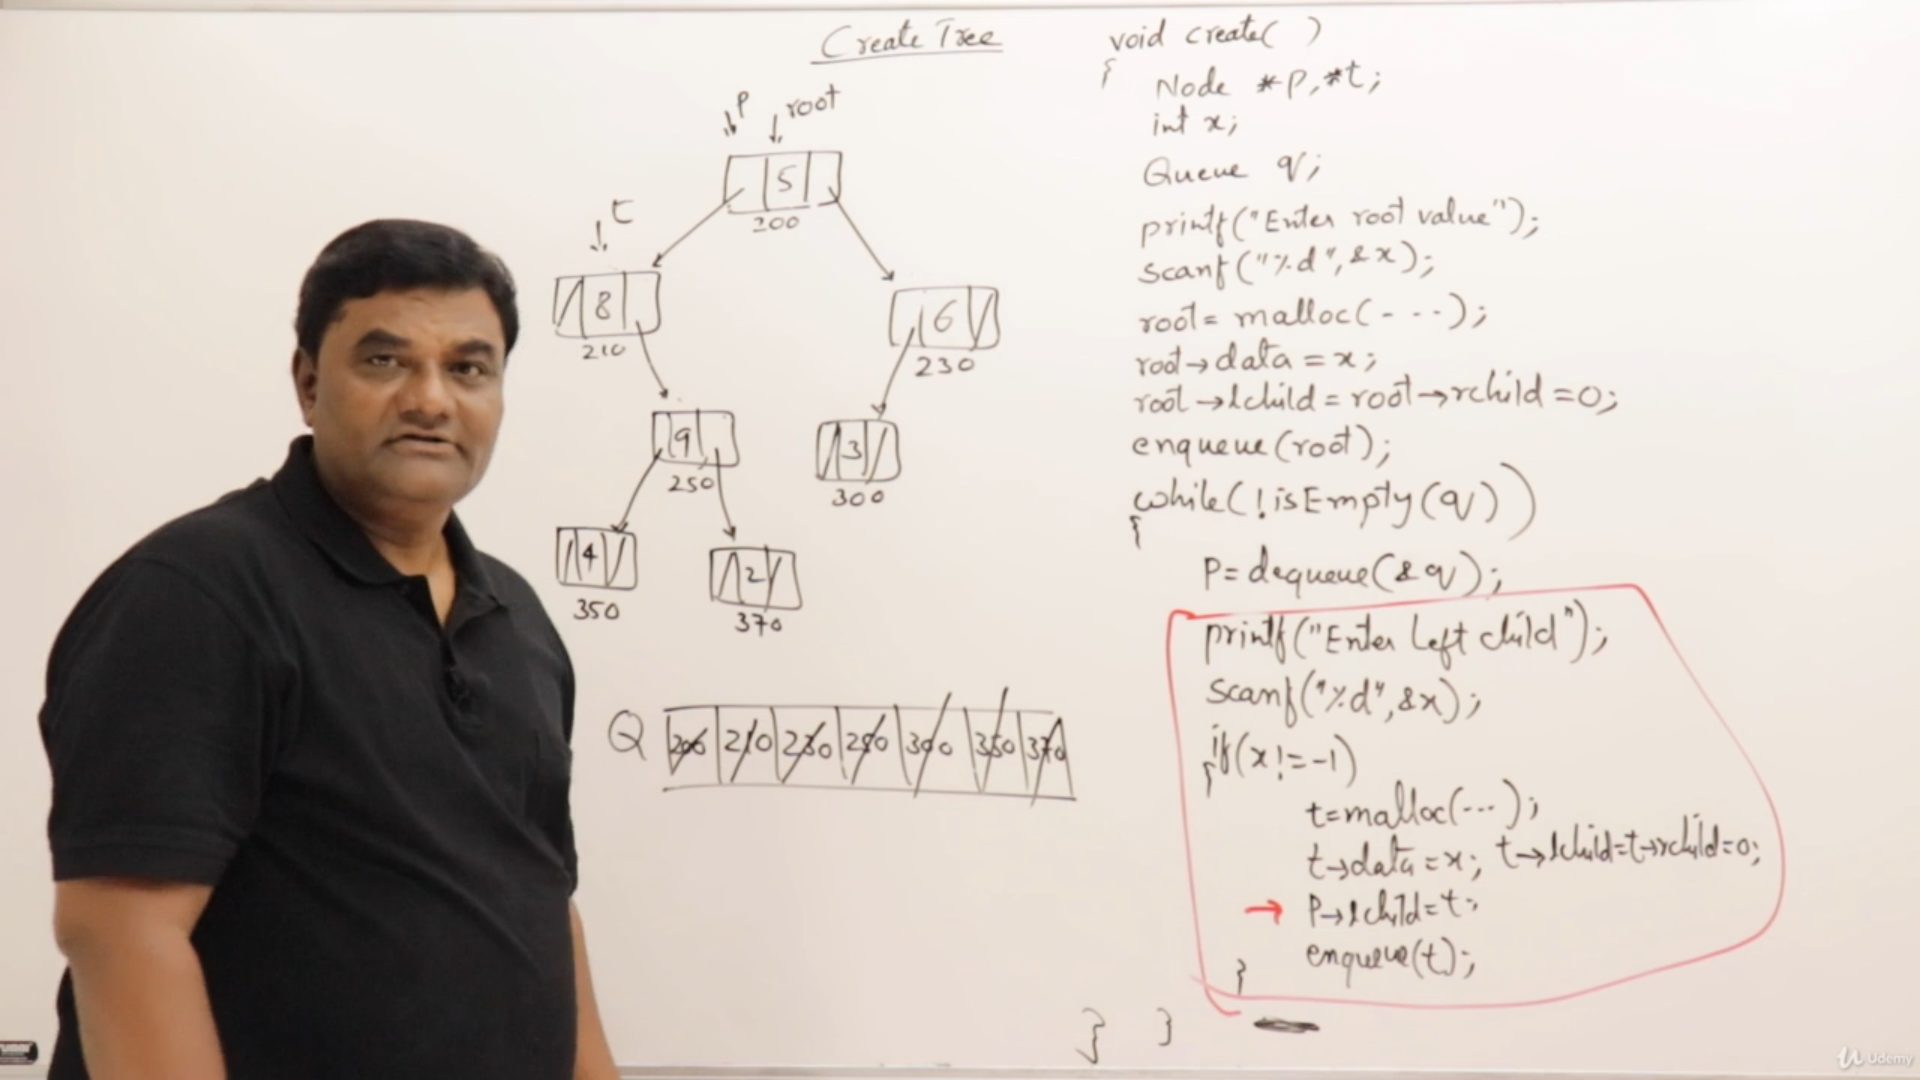 Create Tree
P root
5
200
t
8
210
6
230
9
250
3
300
4
350
2
370
Q 200 210 230 250 300 350 370
void create( )
{
Node *p,*t;
int x;
Queue q;
printf("Enter root value");
scanf("%d",&x);
root= malloc(- - - -);
root→data = x;
root→lchild = root→rchild = 0;
enqueue(root);
while(!isEmpty(q))
{
P= dequeue(&q);
printf("Enter Left child");
scanf("%d",&x);
if(x!=-1)
{
t=malloc(---);
t→data=x; t→lchild=t→rchild=0;
→ P→lchild=t;
enqueue(t);
}
} }
Udemy